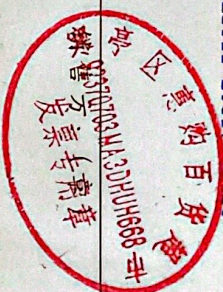 区惠购百货超市
92370703MA3DHUH668
发票专用章